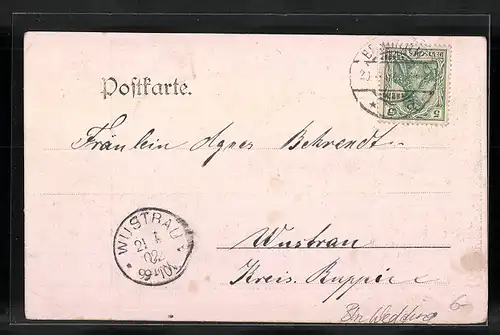 Postkarte.
Fräulein Agnes Behrendt
Wustrau
Kreis Ruppin
WUSTRAU
21
02
9-10V
Bln Wedding
6-